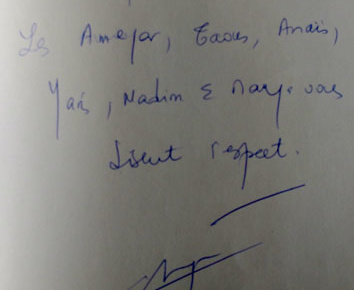 Les Ameyar, Taous, Anaïs,
Yanis, Nadim & Mary. vous
disent respect.